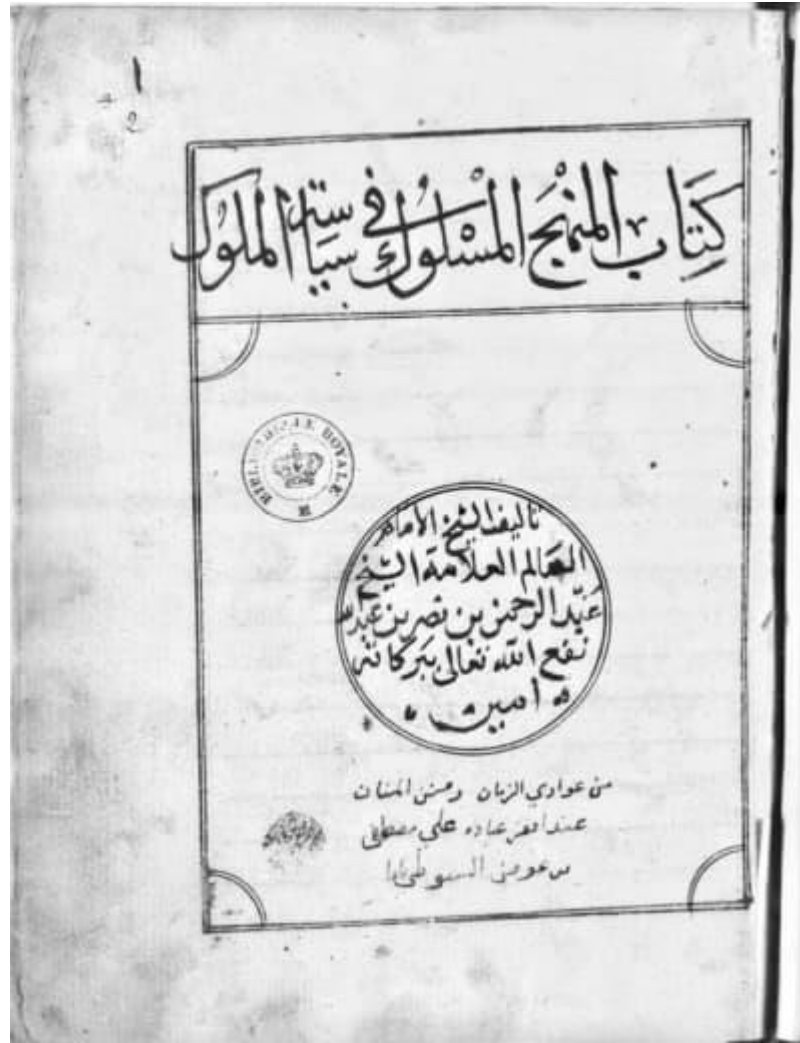 ١
2
كِتَاب المَنْهَج المَسْلُوك في سِيَاسَة المُلُوك
BIBLIOTHECAE ROYALE
تاليف الشيخ الامام
العالم العلامة الشيخ
عَبْد الرحمن بن نصر بن عبدالله
نفع الله تعالى ببركاته
امين
من عوادي الزمان ومنن المنان
عند افقر عباده علي مصطفى